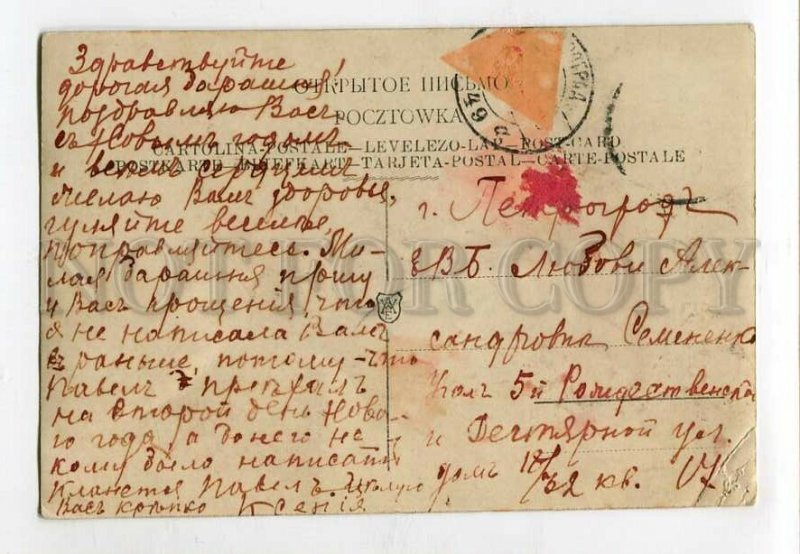 Здравствуйте
дорогая барашня!
поздравляю Васъ
съ Новымъ годомъ
и всемъ сердцемъ
желаю Вамъ здоровья,
гуляйте веселье,
поправляйтесь. Ми-
лая барашня прошу
у Васъ прощенія, что
я не написала Вамъ
раньше, потому-что
Павелъ преѣхалъ
на второй день Ново-
го года, а до него не
кому было написать
Кланется Павелъ. Цѣлую
Васъ крѣпко Ксенія
ОТКРЫТОЕ ПИСЬМО
POCZTOWKA
CARTOLINA-POSTALE—LEVELEZO-LAP—POST-CARD
POSTKARTE—BRIEFKART—TARJETA-POSTAL—CARTE-POSTALE
г. Петроградъ
ЕВБ. Любови Алек-
сандровнѣ Семененко
5й Рождественской
и Дегтярной ул.
домъ 32 кв. 17
NOT FOR COPY